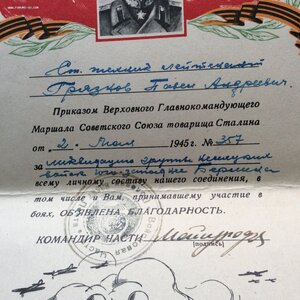 Ст. техник лейтенант
Грязнов Павел Андреевич.
Приказом Верховного Главнокомандующего
Маршала Советского Союза товарища Сталина
от 2 Мая 1945 г. № 357
за ликвидацию группы немецких
войск юго-
всему личному составу нашего соединения, в
том числе и Вам, принимавшему участие в
боях, ОБЪЯВЛЕНА БЛАГОДАРНОСТЬ.
КОМАНДИР ЧАСТИ
(подпись)